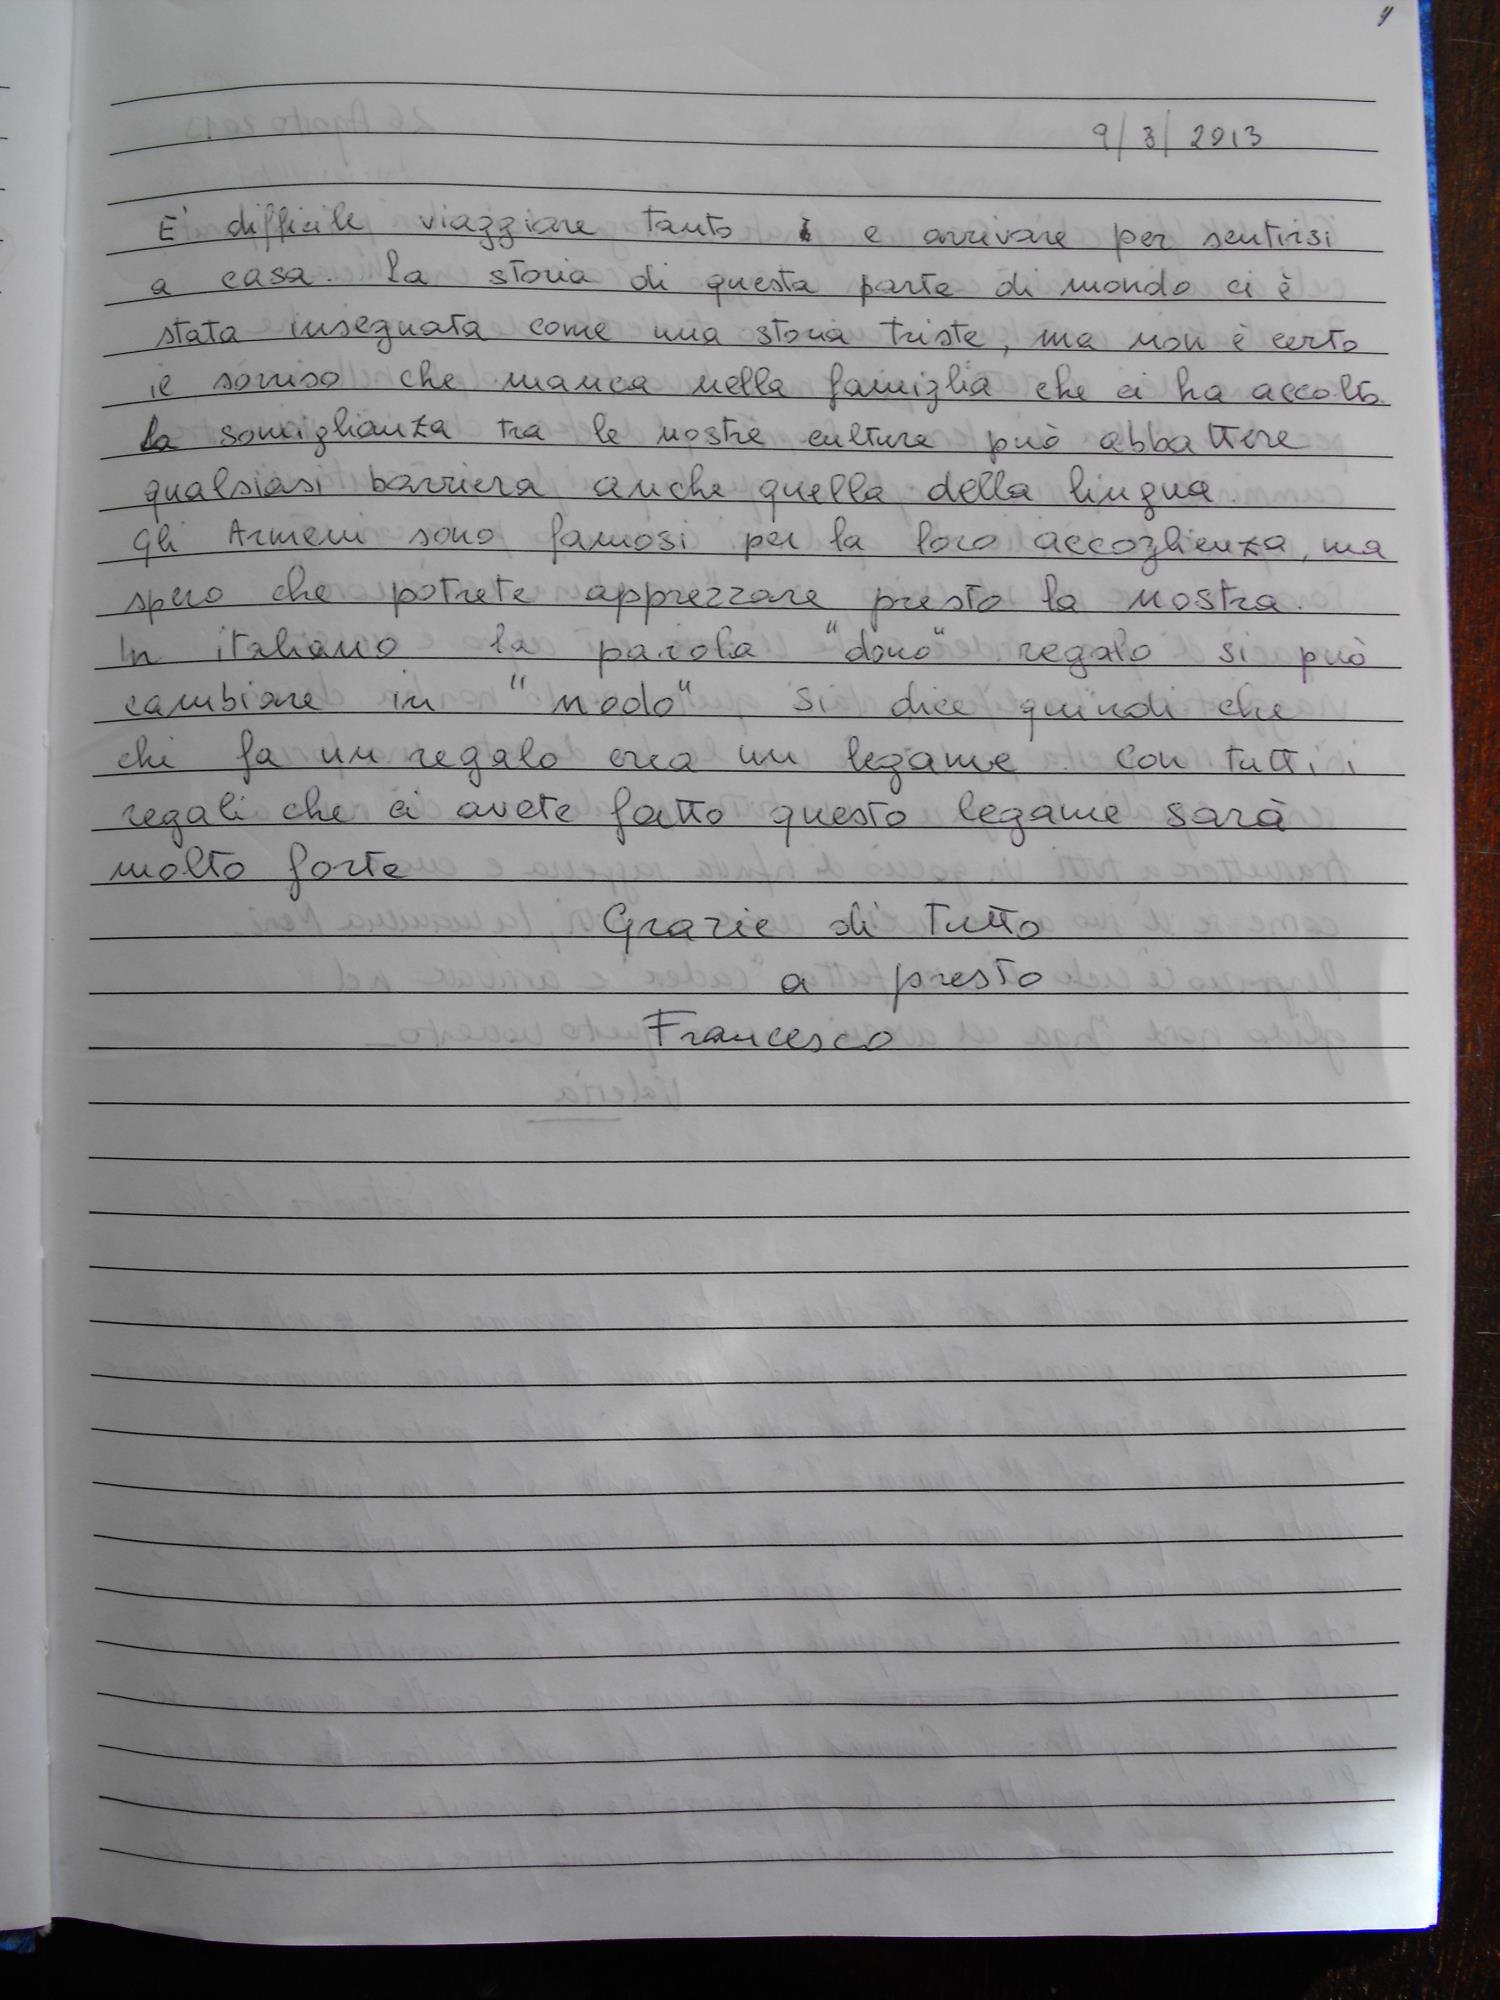 9/8/2013
E' difficile viaggiare tanto e arrivare per sentirsi
a casa. La storia di questa parte di mondo ci è
stata insegnata come una storia triste, ma non è certo
il sorriso che manca nella famiglia che ci ha accolto.
La somiglianza tra le nostre culture può abbattere
qualsiasi barriera anche quella della lingua.
Gli Armeni sono famosi per la loro accoglienza, ma
spero che potrete apprezzare presto la nostra.
In italiano la parola "dono" regalo si può
cambiare in "nodo" si dice quindi che
chi fa un regalo crea un legame. Con tutti i
regali che ci avete fatto questo legame sarà
molto forte
Grazie di tutto
a presto
Francesco